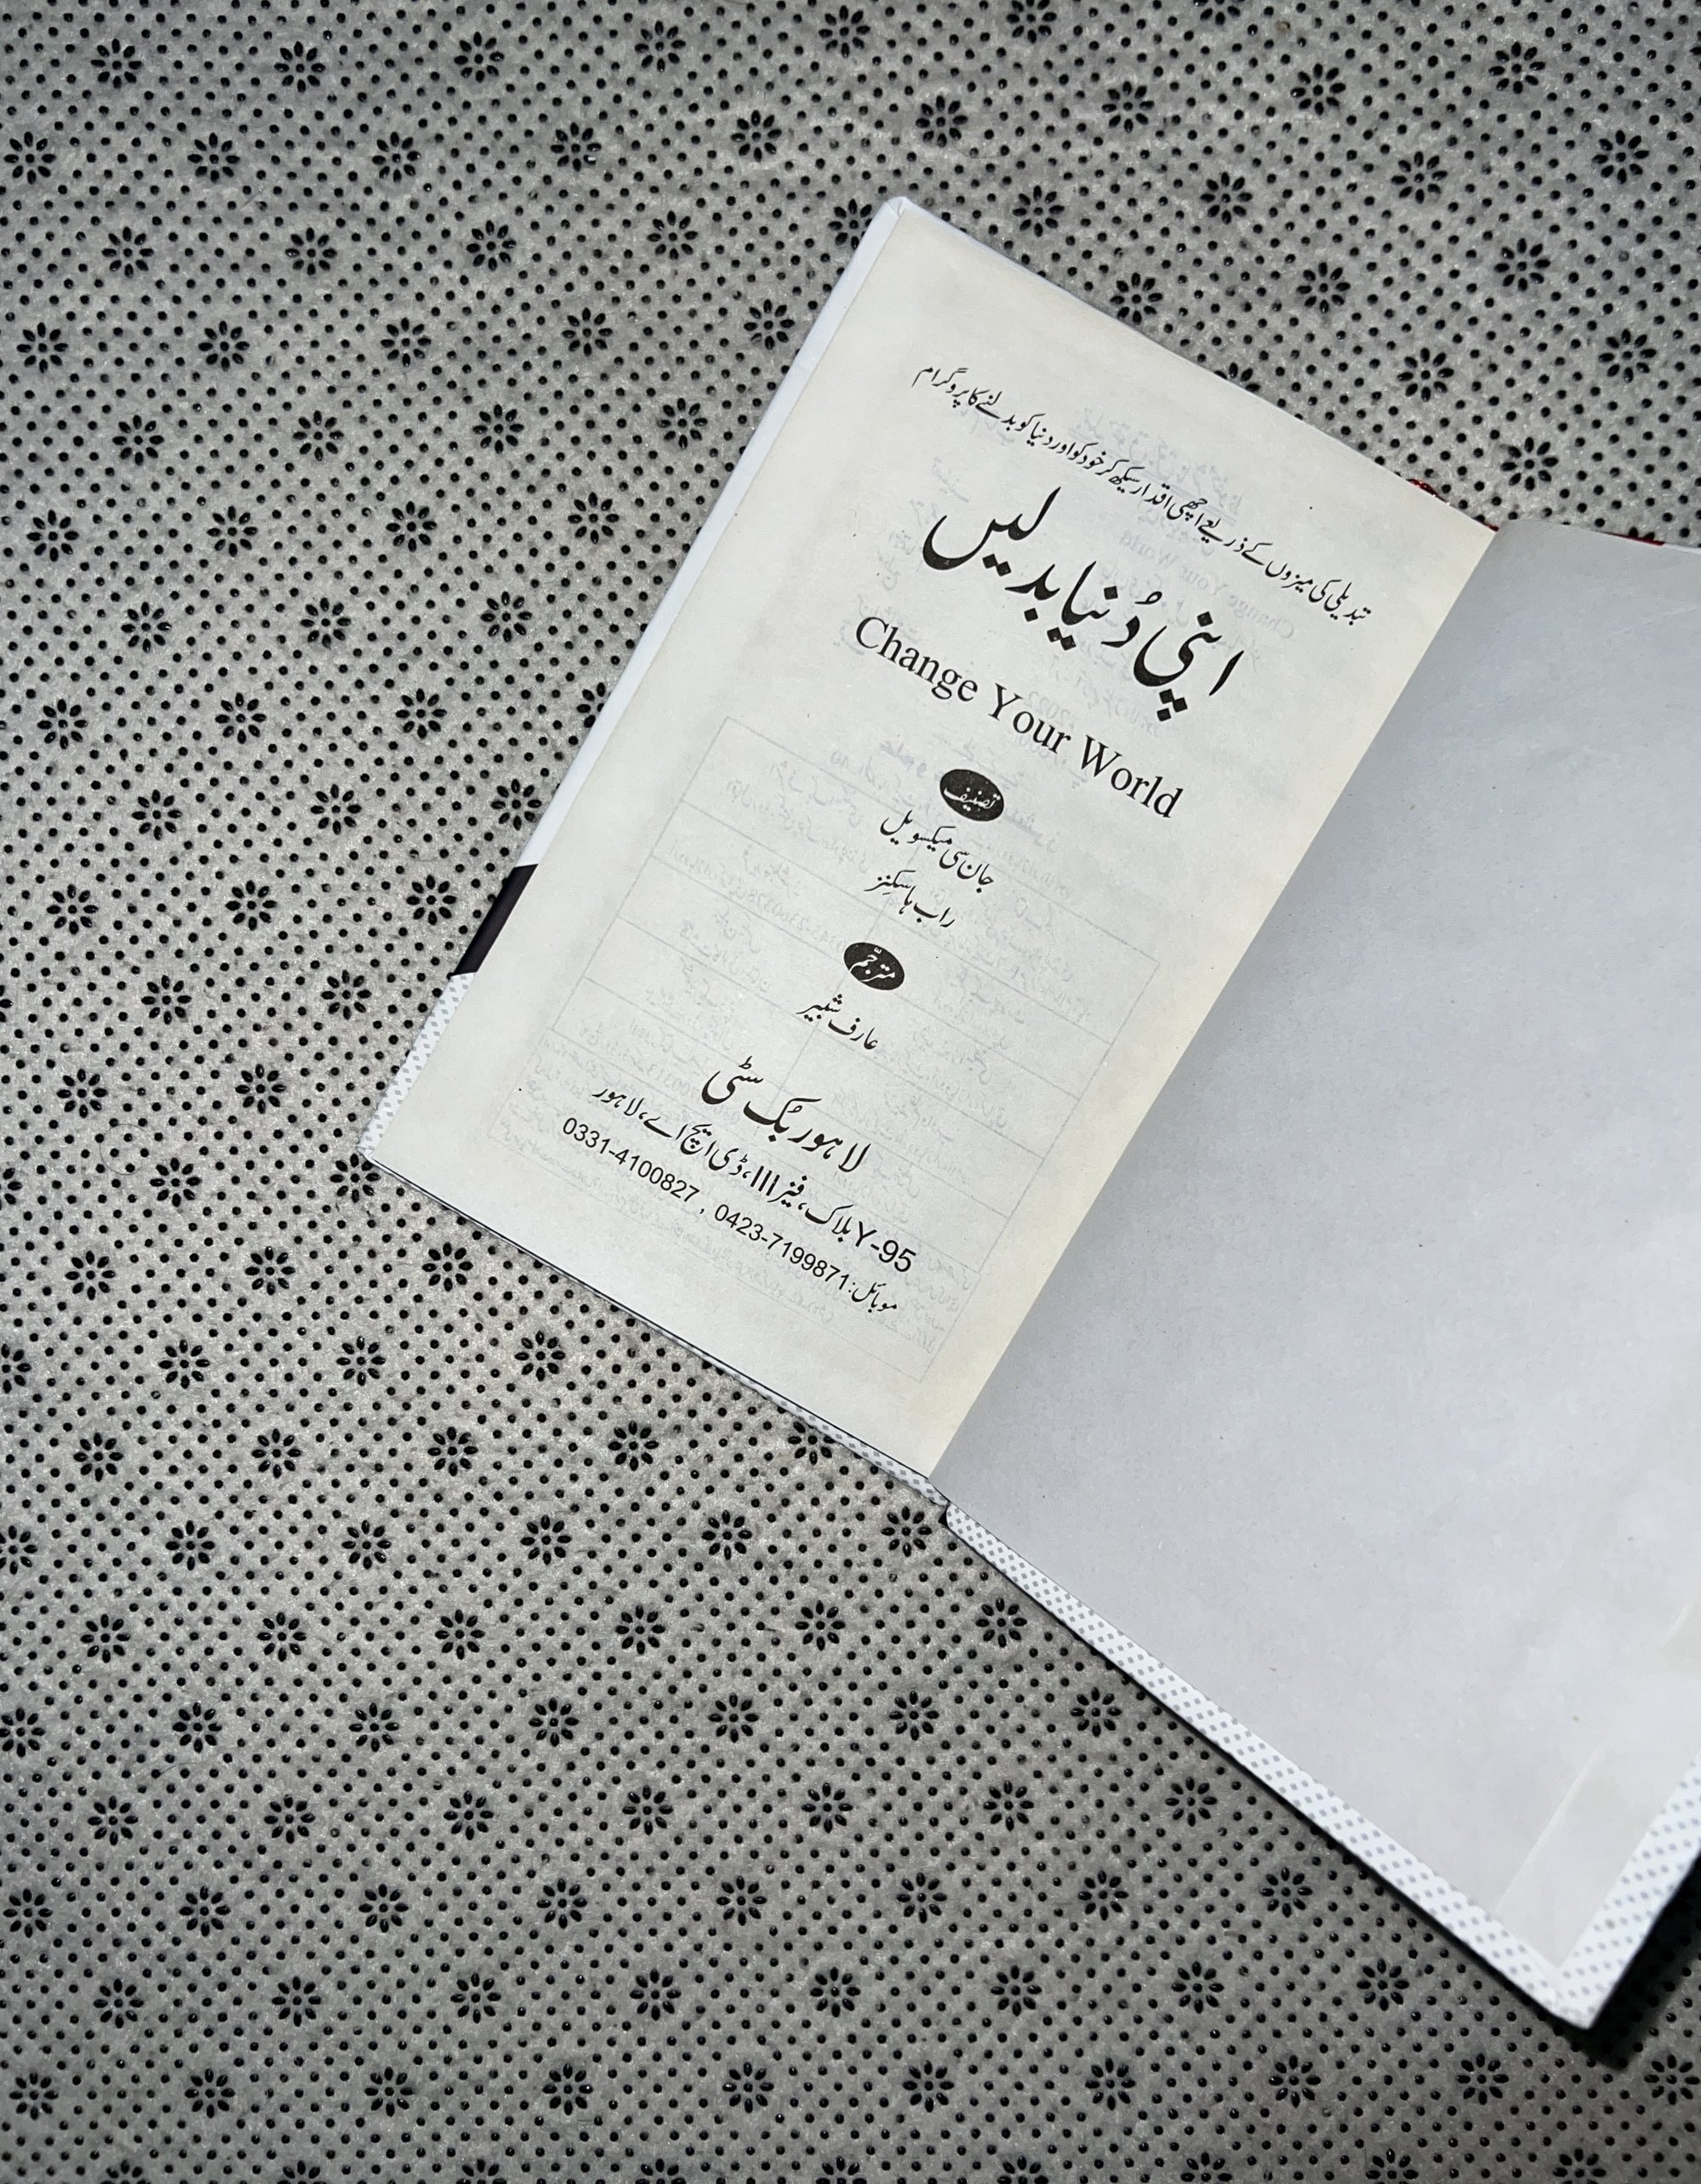 تبدیلی کی میزوں کے ذریعے اچھی اقدار سیکھ کر خود کو اور دنیا کو بدلنے کا پروگرام
اپنی دُنیا بدلیں
Change Your World
تصنیف
جان سی میکسویل
راب ہاسکِنز
مترجّم
عارف شبیر
لاہور بُک سٹی
95-Y بلاک، فیز III، ڈی ایچ اے، لاہور
موبائل: 0423-7199871 , 0331-4100827